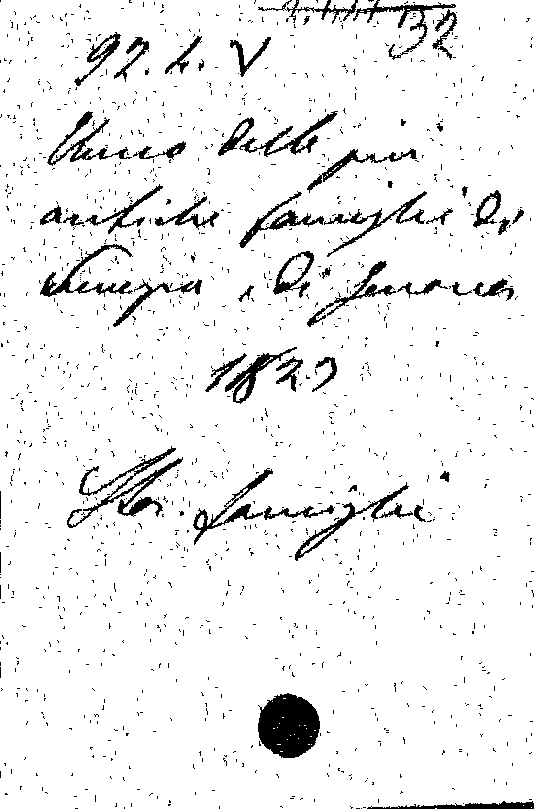 32
92. L. V
Elenco delle più
antiche famiglie di
Venezia e di Genova
1823
Stor. famiglie